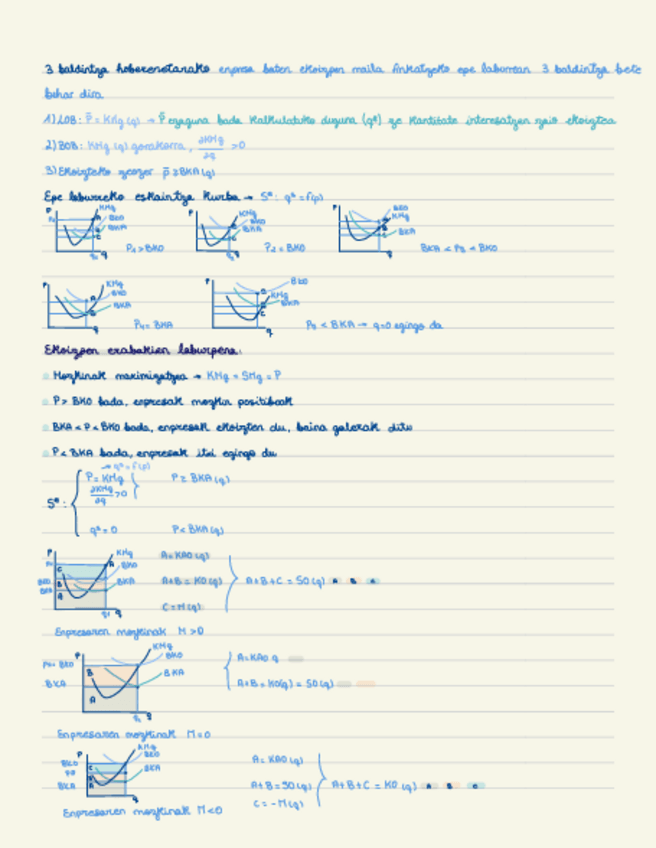 3 baldintza hoberenetarako enpresa baten ekoizpen maila finkatzeko epe laburrean 3 baldintza bete
behar dira
1) LOB: p̄ = KMg (q) → p̄ ezaguna bada kalkulatuko duguna (q°) ze kantitate interesatzen zaio ekoiztea
2) BOB: KMg (q) gorakorra, ∂KMg/∂q > 0
3) Ekoizteko p̄ ≥ BKA (q)
Epe laburreko eskaintza kurba → S°: q° = f(p)
P KMg BKO BKA q P₁ > BKO
P KMg BKO BKA q P₂ = BKO
P BKO KMg BKA q BKA < P₃ < BKO
P KMg BKO BKA q P₄ = BKA
P BKO KMg BKA q P₅ < BKA → q=0 egingo da
Ekoizpen erabakien laburpena:
Mozkinak maximizatzea → KMg = SMg = P
P > BKO bada, enpresak mozkin positiboak
BKA < P < BKO bada, enpresak ekoizten du, baina galerak ditu
P < BKA bada, enpresak itxi egingo du
→ q° = f(p)
S°: P = KMg P ≥ BKA (q)
∂KMg/∂q > 0
q° = 0 P < BKA (q)
P KMg A = KAO (q)
C A BKO BKA B A+B = KO (q) A+B+C = SO (q) A B C
A q₁ q C = M (q)
Enpresaren mozkinak M > 0
KMg
P BKO A = KAO q
B BKA BKA A+B = KO(q) = SO (q)
A q
Enpresaren mozkinak M = 0
P KMg BKO A = KAO (q)
BKO C BKA A+B = SO (q) A+B+C = KO (q) A B C
BKA B A q C = -M (q)
Enpresaren mozkinak M < 0